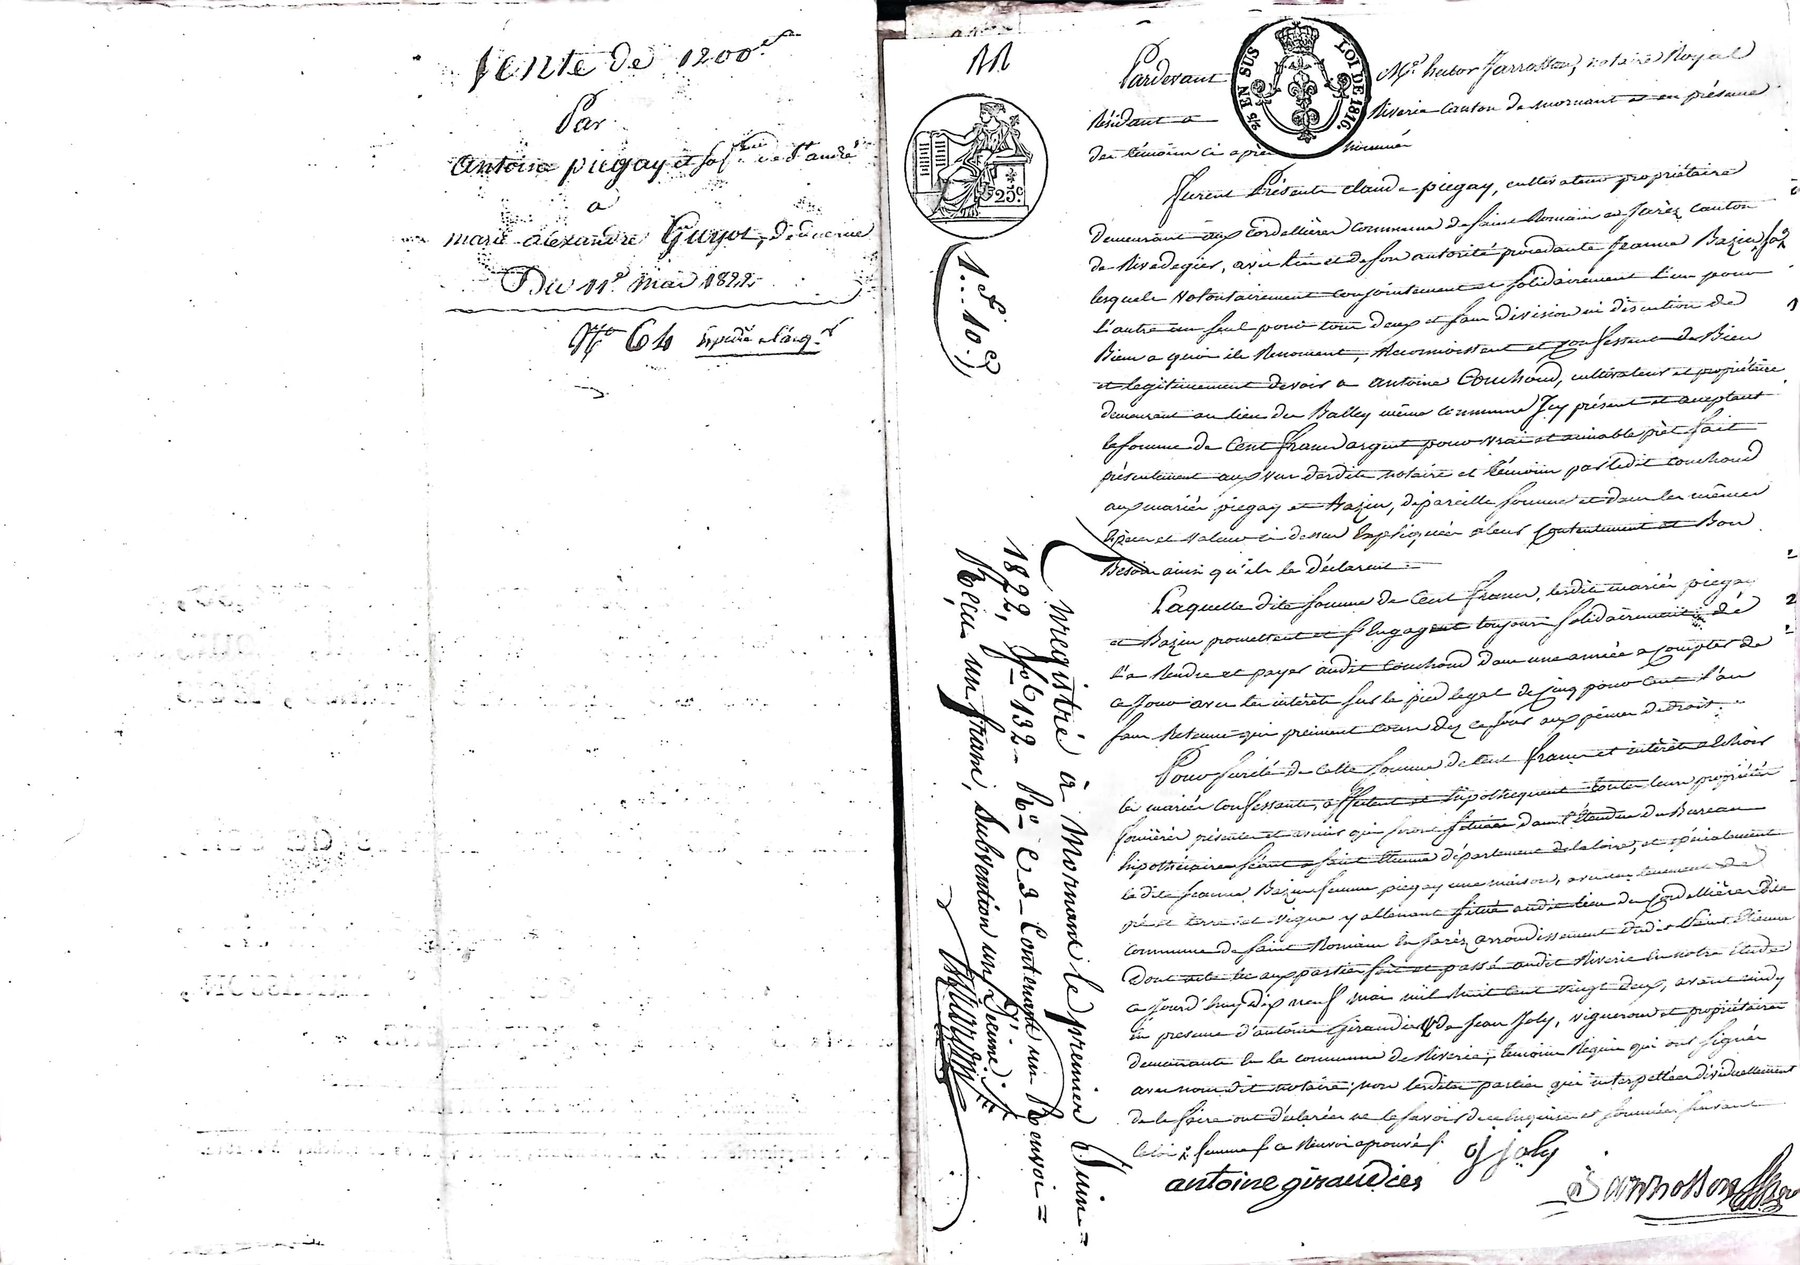 Vente de 1200 f
Par
antoine piegay et sa f.me de St andré
a
marie alexandre Guyot, d'
Du 11e mai 1822
No 64 Expédié a l'acqr
11
Pardevant Me hector Jarrosson, notaire Royal
Résidant a Riverie canton de mornant et en présence
des témoins ci après nommés
EN SUS LOI DE 1816.
25c.
1.f 10.cs
furent Présents claude piegay, cultivateur propriétaire
demeurant aux cordellières commune de saint Romain en Jarèz canton
de Rivedegier, avec lui et de son autorité procedante Jeanne Bazin, sa
lesquels volontairement conjointement et solidairement l'un pour
l'autre un seul pour tous deux et sans division ni discution de
Biens a quoi ils Renoncent, Reconnoissent et confessent de Bien
et legitimement devoir a antoine Couchoud, cultivateur et propriétaire
demeurant au lieu du Balley même commune Icy présent et aceptant
la somme de Cent francs argent pour vrai et amiable prêt fait
présentement aux vues desdits notaire et témoins par ledit couchoud
aux mariés piegay et Bazin, de pareille somme et dans les mêmes
Espèces et valeur ci dessus Expliquées a leur Contentement et Bon
Besoin ainsi qu'ils le déclarent.
Laquelle dite somme de Cent francs, lesdits mariés piegay
et Bazin promettent et s'Engagent toujours solidairement de
la Rendre et payer audit Couchoud dans une année a compter de
ce jour avec les intérêts sur le pied legal de Cinq pour cent l'an
sans Retenue qui prennent cours dez ce jour aux peines de droit.
Pour sureté de cette somme de Cent francs et intérêts a Echoir
les mariés confessants, affectent et hipothequent toutes leurs propriétés
foncières présentes et avenir qui seront situées dans l'étendue du Bureau
hipothécaire séant a saint Etienne département de la loire, et spécialement
ladite Jeanne Bazin femme piegay une maison, avec un tenement de
pré et terre et vigne y attenant situé audit lieu du Cordellières dite
commune de saint Romain En Jarèz arrondissement dudit Saint Etienne
Dont acte lu aux parties fait et passé audit Riverie En notre étude
ce jourd'huy dix neuf mai mil huit cent vingt deux, avant midy
En presence d'antoine Giraudier et de Jean Joly, vignerons et propriétaires
demeurants En la commune de Riverie, temoins Requis qui ont signés
avec nous dit notaire, non lesdites parties qui interpellées dividuellement
de le faire ont déclarées ne le savoir de ce Enquises et sommées suivant
la loi : femme f. ce Renvoi aprouvé f.
antoine giraudier
J joly
Jarrosson
Enregistré à Mornant le premier Juin =
1822, fo 132 Ro C 3 Contenant un Renvoi =
Reçu un franc, Subvention un Decime.